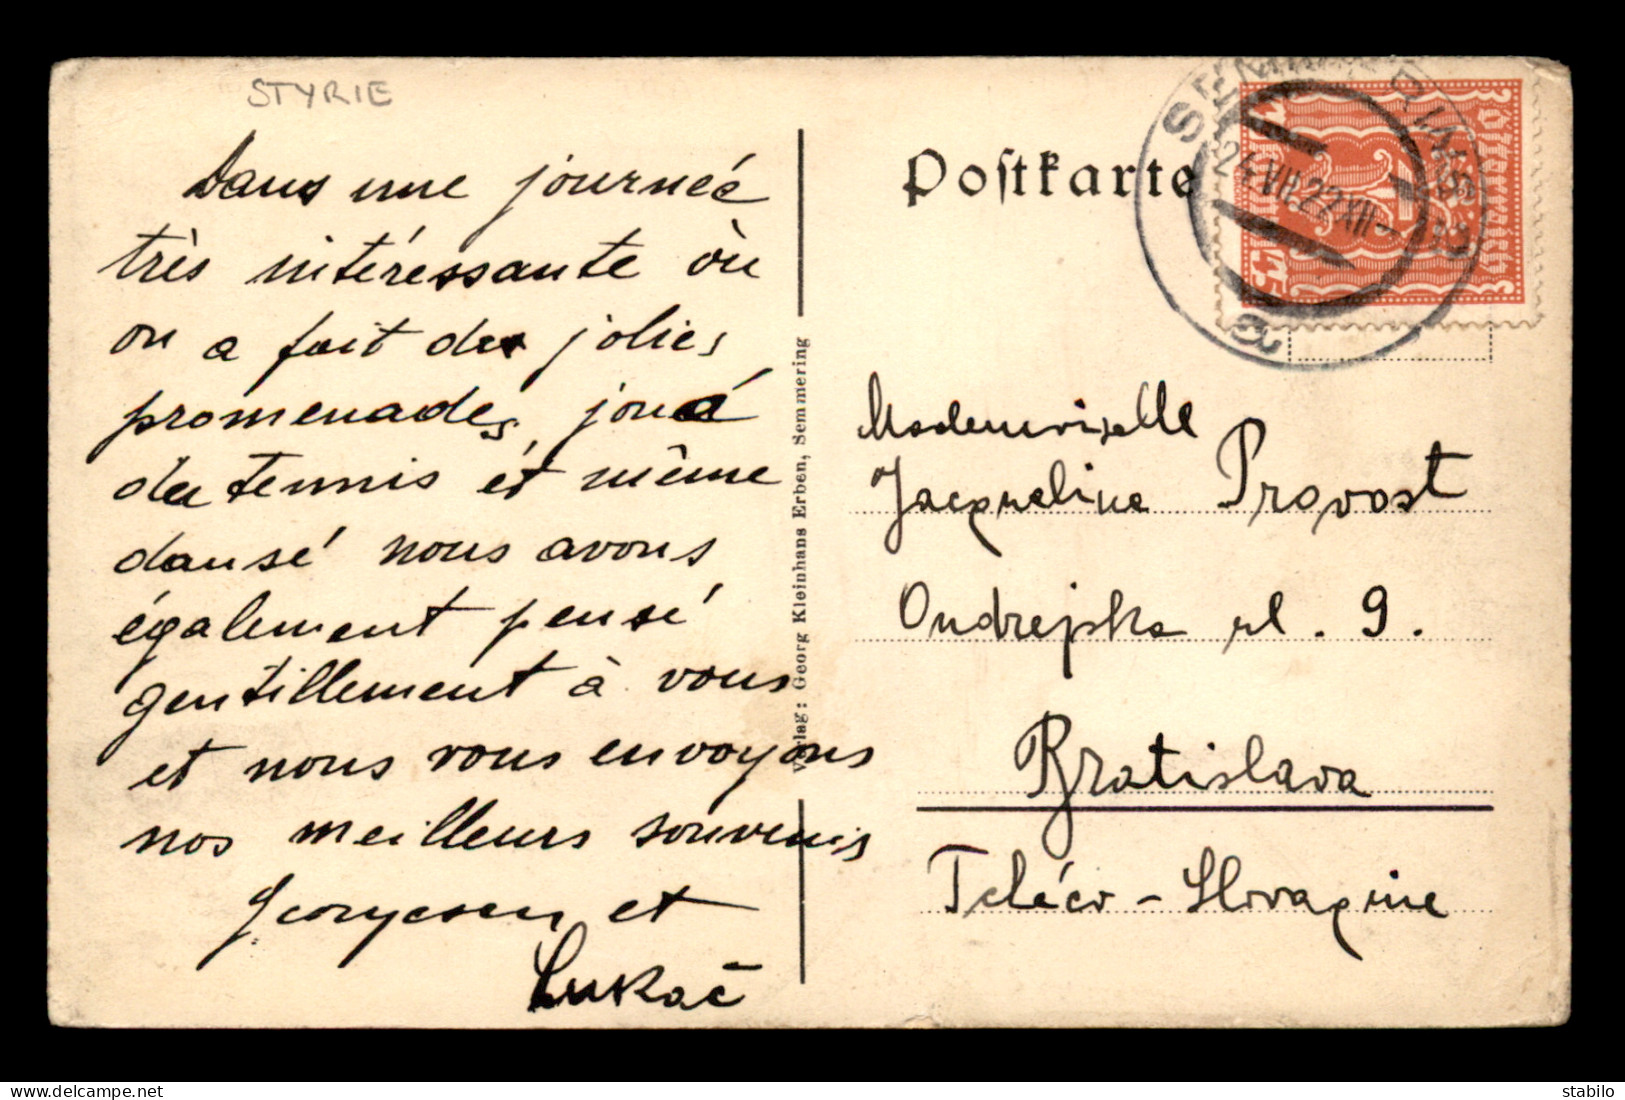 STYRIE
Dans une journée
très intéressante où
on a fait des jolies
promenades, joué
du tennis et même
dansé nous avons
également pensé
gentillement à vous
et nous vous envoyons
nos meilleurs souvenirs
et
Lukač
Verlag: Georg Kleinhans Erben, Semmering
Postkarte
24.VII.22.XII
a
Österreich
Mademoiselle
Jacqueline Provost
Ondrejska ul. 9.
Bratislava
Tchéco-Slovaquie
stabilo